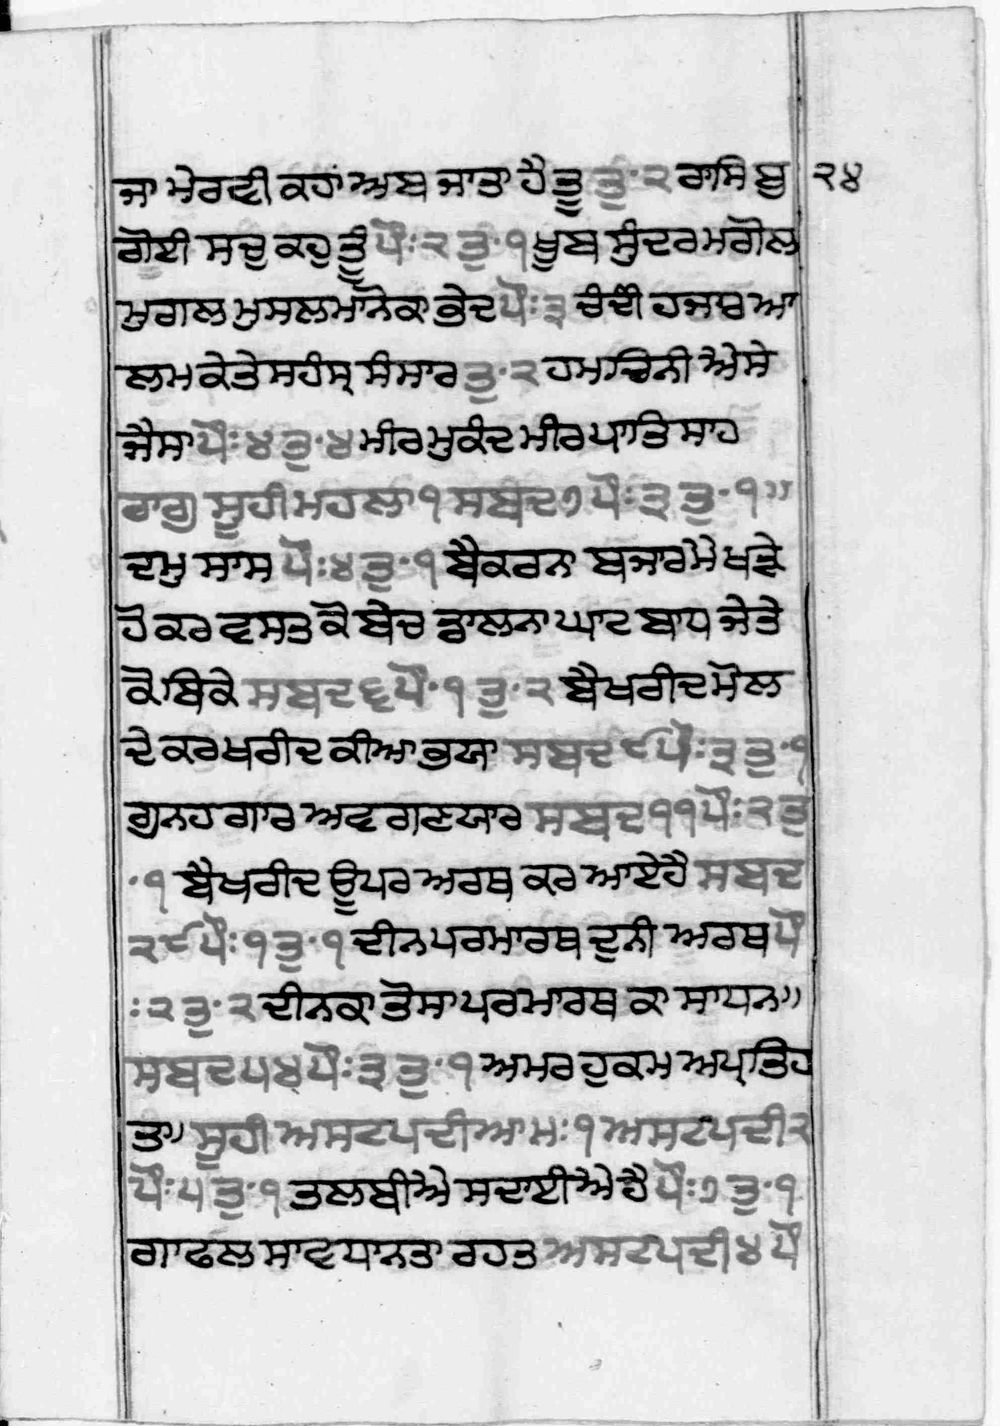 ਜਾ ਮੇਰਵੀ ਕਹਾਂ ਅਬ ਜਾਤਾ ਹੈ ਤੂ ਤੁ·੨ ਰਾਸਿ ਬੁ ੨੪
ਗੋਈ ਸਚੁ ਕਹੁ ਤੂੰ ਪੌਃ੨ ਤੁ·੧ ਖੂਬ ਸੁੰਦਰ ਮਗੋਲ
ਮੁਗਲ ਮੁਸਲਮਾਨੋਕਾ ਭੇਦ ਪੌਃ੩ ਚੰਦੀ ਹਜਾਰ ਆ
ਲਮ ਕੇਤੇ ਸਹੰਸ੍ ਸੰਸਾਰ ਤੁ·੨ ਹਮਾਚਿਨੀ ਐਸੇ
ਜੈਸਾ ਪੌਃ੪ ਤੁ·੪ ਮੀਰ ਮੁਕੰਦ ਮੀਰ ਪਾਤਿਸਾਹ
ਰਾਗੁ ਸੂਹੀ ਮਹਲਾ ੧ ਸਬਦ ੭ ਪੌਃ੩ ਤੁ·੧॥
ਦਮੁ ਸਾਸ ਪੌਃ੪ ਤੁ·੧ ਬੈਕਰਨਾ ਬਜਾਰ ਮੇ ਖੜੇ
ਹੋ ਕਰ ਵਸਤ ਕੋ ਬੇਚ ਡਾਲਨਾ ਘਾਟ ਬਾਧ ਜੇਤੇ
ਕੋ ਬਿਕੇ ਸਬਦ ੬ ਪੌ·੧ ਤੁ·੨ ਬੈਖਰੀਦ ਮੋਲ
ਦੇ ਕਰ ਖਰੀਦ ਕੀਆ ਭਯਾ ਸਬਦ ੯ ਪੌਃ੩ ਤੁ·੧
ਗੁਨਹਗਾਰ ਅਵਗਣਯਾਰ ਸਬਦ ੧੧ ਪੌਃ੨ ਤੁ
·੧ ਬੈਖਰੀਦ ਊਪਰ ਅਰਥ ਕਰ ਆਏ ਹੈ ਸਬਦ
੨੯ ਪੌਃ੧ ਤੁ·੧ ਦੀਨ ਪਰਮਾਰਥ ਦੁਨੀ ਅਰਥ ਪੌ
ਃ੨ ਤੁ·੨ ਦੀਨ ਕਾ ਤੋਸਾ ਪਰਮਾਰਥ ਕਾ ਸਾਧਨ॥
ਸਬਦ ੫੪ ਪੌਃ੩ ਤੁ·੧ ਅਮਰ ਹੁਕਮ ਅਪ੍ਤਿਹ
ਤਾ॥ ਸੂਹੀ ਅਸਟਪਦੀਆ ਮਃ੧ ਅਸਟਪਦੀ ੨
ਪੌਃ੫ ਤੁ·੧ ਤਲਬੀਐ ਸਦਾਈਐ ਹੈ ਪੌਃ੭ ਤੁ·੧
ਗਾਫਲ ਸਾਵਧਾਨਤਾ ਰਹਤ ਅਸਟਪਦੀ ੪ ਪੌ